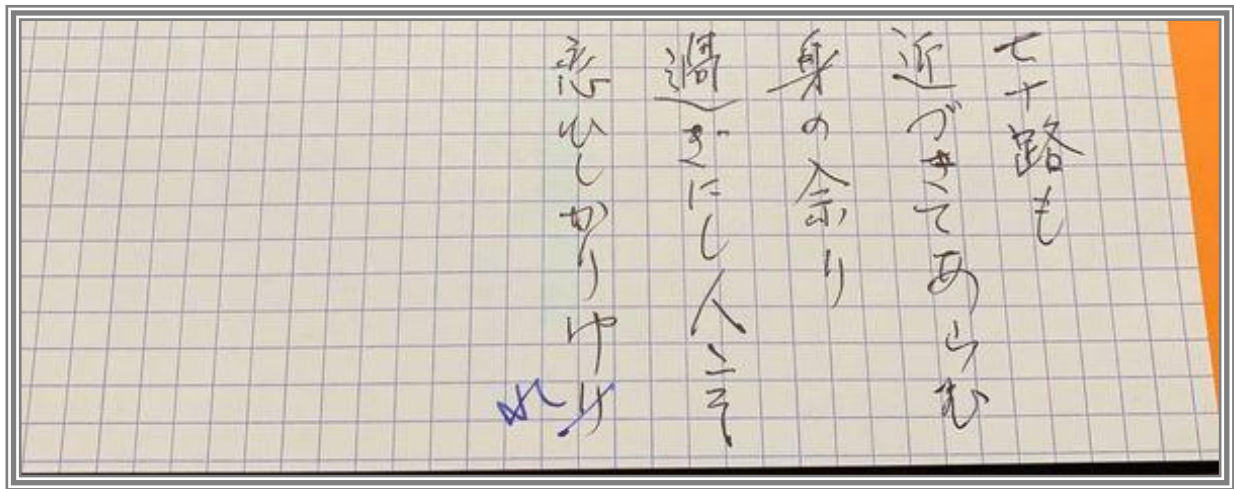 七十路も
近づきてあらむ
身の余り
過ぎにし人こそ
恋ひしかりゆけ
れ